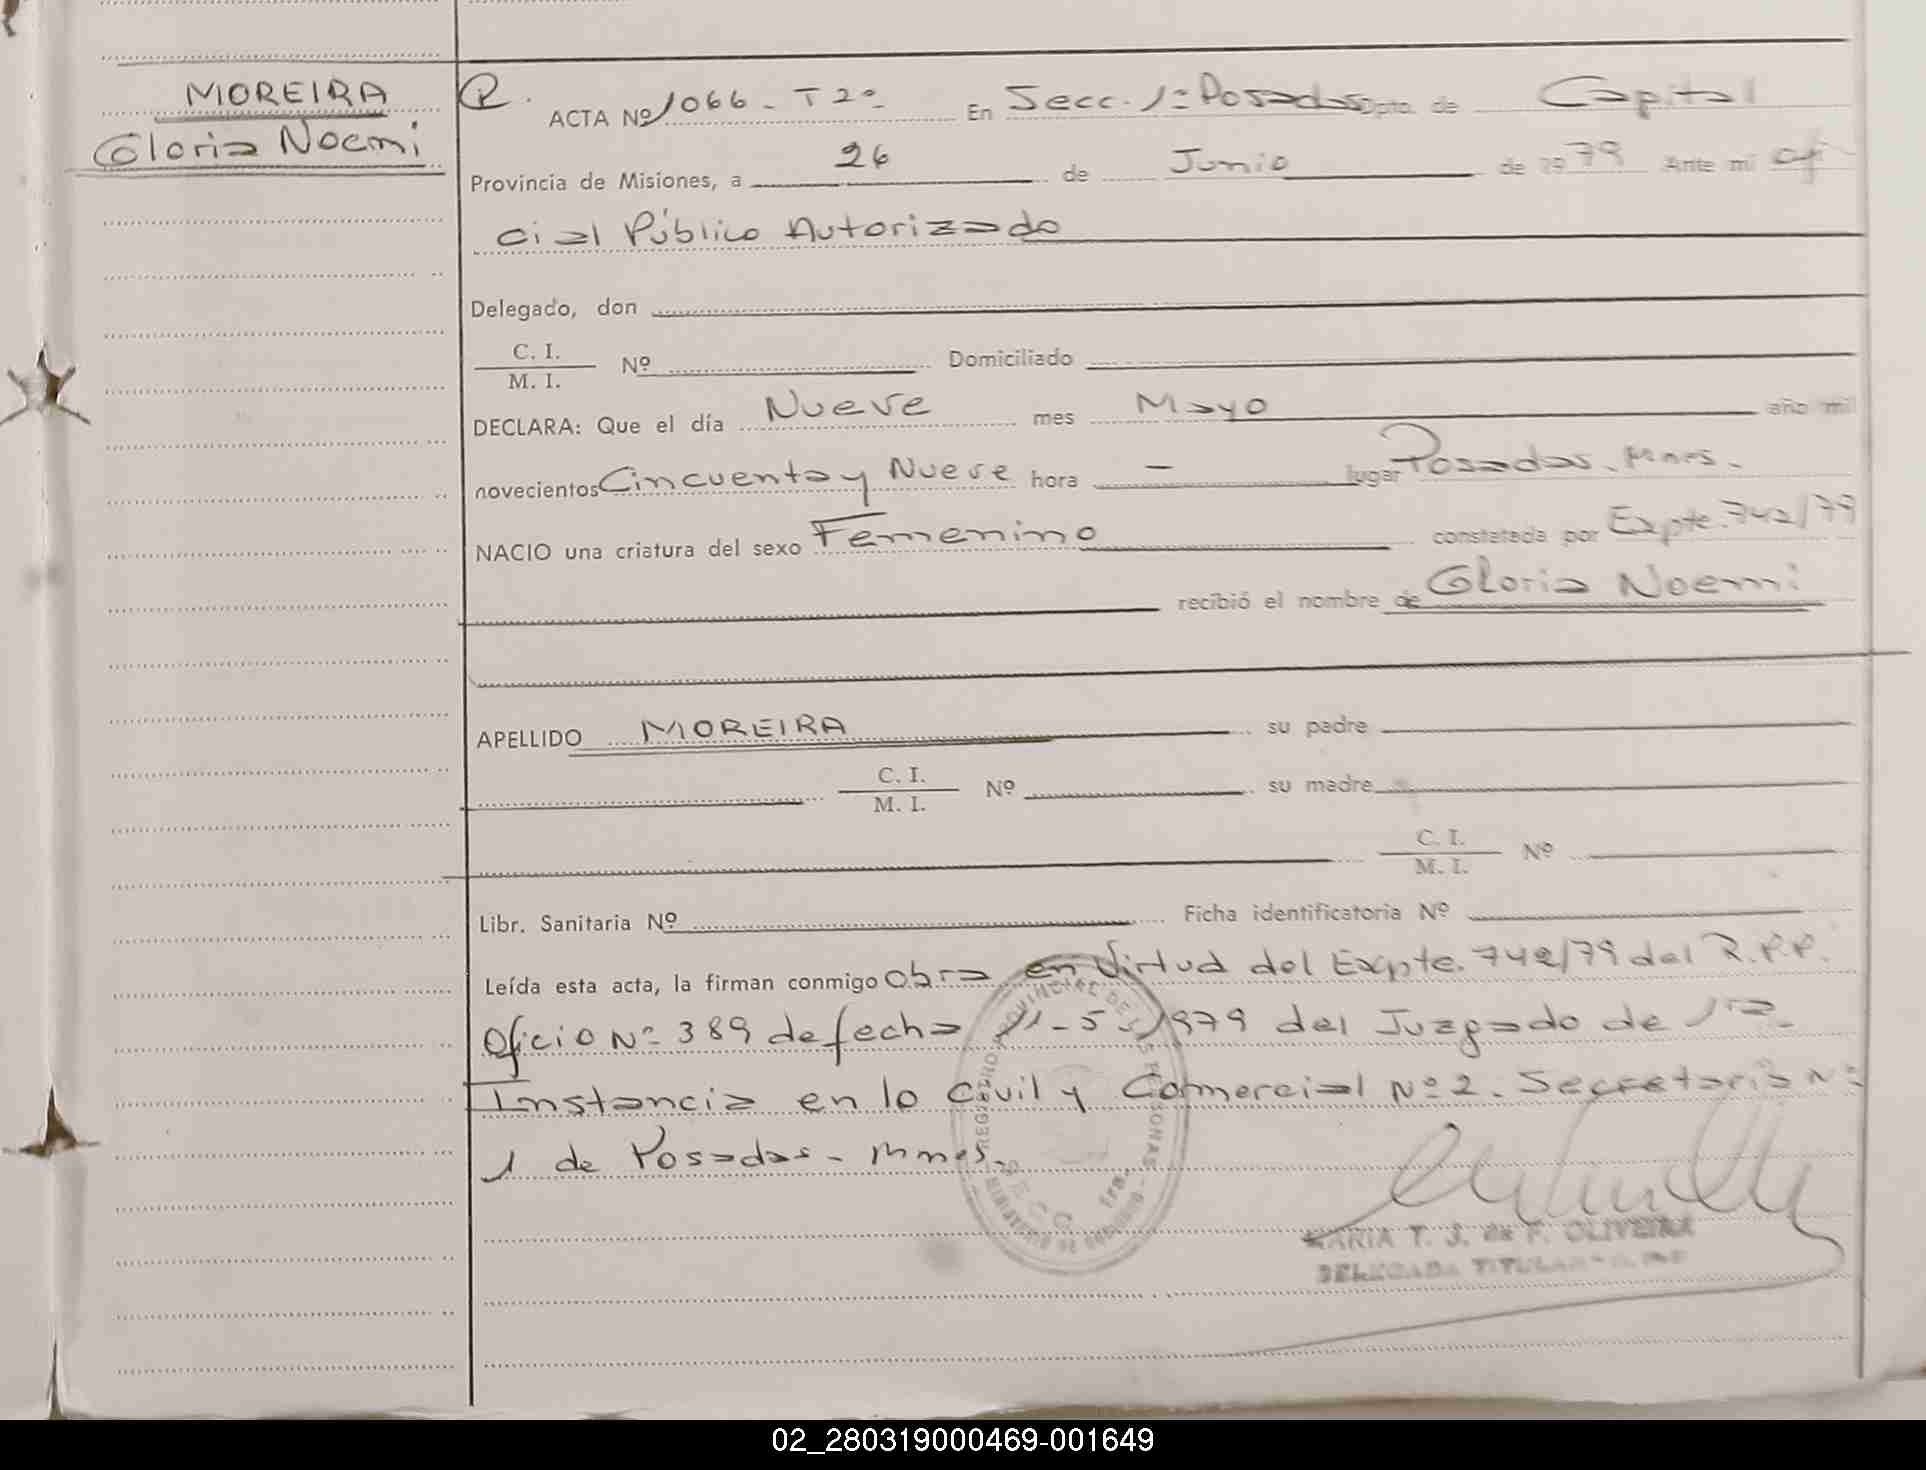 MOREIRA
Gloria Noemi
R. ACTA Nº 1066 - T2º En Secc. 1ª Posadas Dpto. de Capital
Provincia de Misiones, a 26 de Junio de 1979 Ante mi ofi
cial Público Autorizado
Delegado, don
C. I.
M. I. Nº Domiciliado
DECLARA: Que el día Nueve mes Mayo año mil
novecientos Cincuenta y Nueve hora — lugar Posadas. Mnes.
NACIO una criatura del sexo Femenino constatada por Expte. 742/79
recibió el nombre de Gloria Noemi
APELLIDO MOREIRA su padre
C. I.
M. I. Nº su madre
C. I.
M. I. Nº
Libr. Sanitaria Nº Ficha identificatoria Nº
Leída esta acta, la firman conmigo Obra en Virtud del Expte. 742/79 del R.P.P.
Oficio Nº 389 de fecha 11-5-1979 del Juzgado de 1ra.
Instancia en lo Civil y Comercial Nº 2. Secretaria Nº
1 de Posadas - Mnes.
REGISTRO PROVINCIAL DE LAS PERSONAS
SECC. 1ra.
MINISTERIO DE GOBIERNO
MARIA T. J. de F. OLIVEIRA
DELEGADA TITULAR
02_280319000469-001649